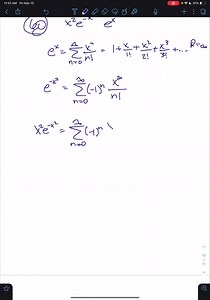 11:01 AM Fri May 12
60 x²e^{-x²} e^x
e^x = ∑_{n=0}^{∞} x^n/n! = 1 + x/1! + x²/2! + x³/3! + ... R=∞
e^{-x²} = ∑_{n=0}^{∞} (-1)^n x^{2n}/n!
x²e^{-x²} = ∑_{n=0}^{∞} (-1)^n